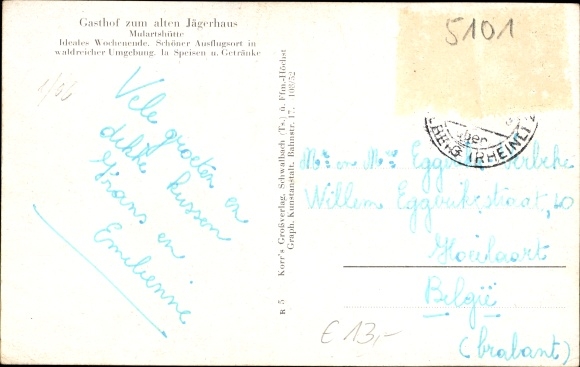 Gasthof zum alten Jägerhaus
Mulartshütte
Ideales Wochenende. Schöner Ausflugsort in
waldreicher Umgebung. Ia Speisen u. Getränke
1/66
Vele groeten en
dikke kussen
Frans en
Emilienne
R 5 Korr's Großverlag, Schwalbach (Ts.) ü. Ffm.-Höchst
Graph. Kunstanstalt, Balmstr. 17. 103/52
5101
über
(RHEINL)
Mr en Mme Eggerickx Verbeke
Willem Eggerickxstraat, 10
Hoeilaart
België
(brabant)
€ 13,-